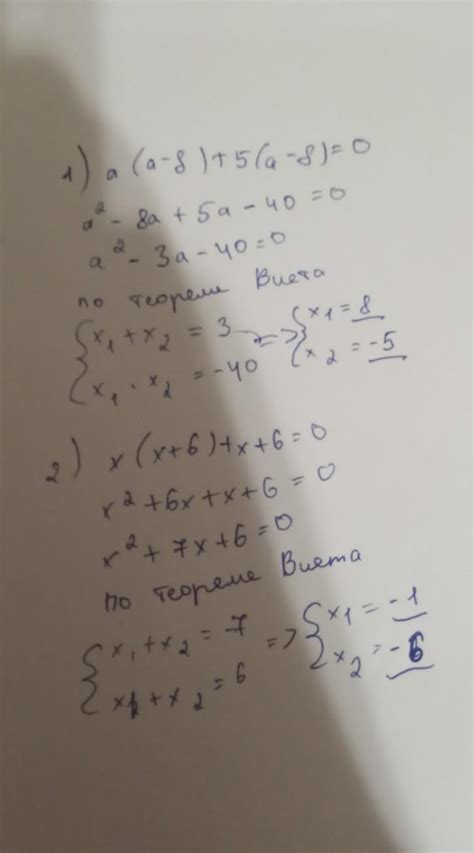 1) a (a-8)+5(a-8)=0
a² - 8a + 5a - 40 = 0
a² - 3a - 40 = 0
по теореме Виета
{ x₁ + x₂ = 3 => { x₁ = 8
{ x₁ · x₂ = -40 { x₂ = -5
2) x (x+6)+x+6=0
x² + 6x + x + 6 = 0
x² + 7x + 6 = 0
по теореме Виета
{ x₁ + x₂ = -7 => { x₁ = -1
{ x₁ + x₂ = 6 { x₂ = -6